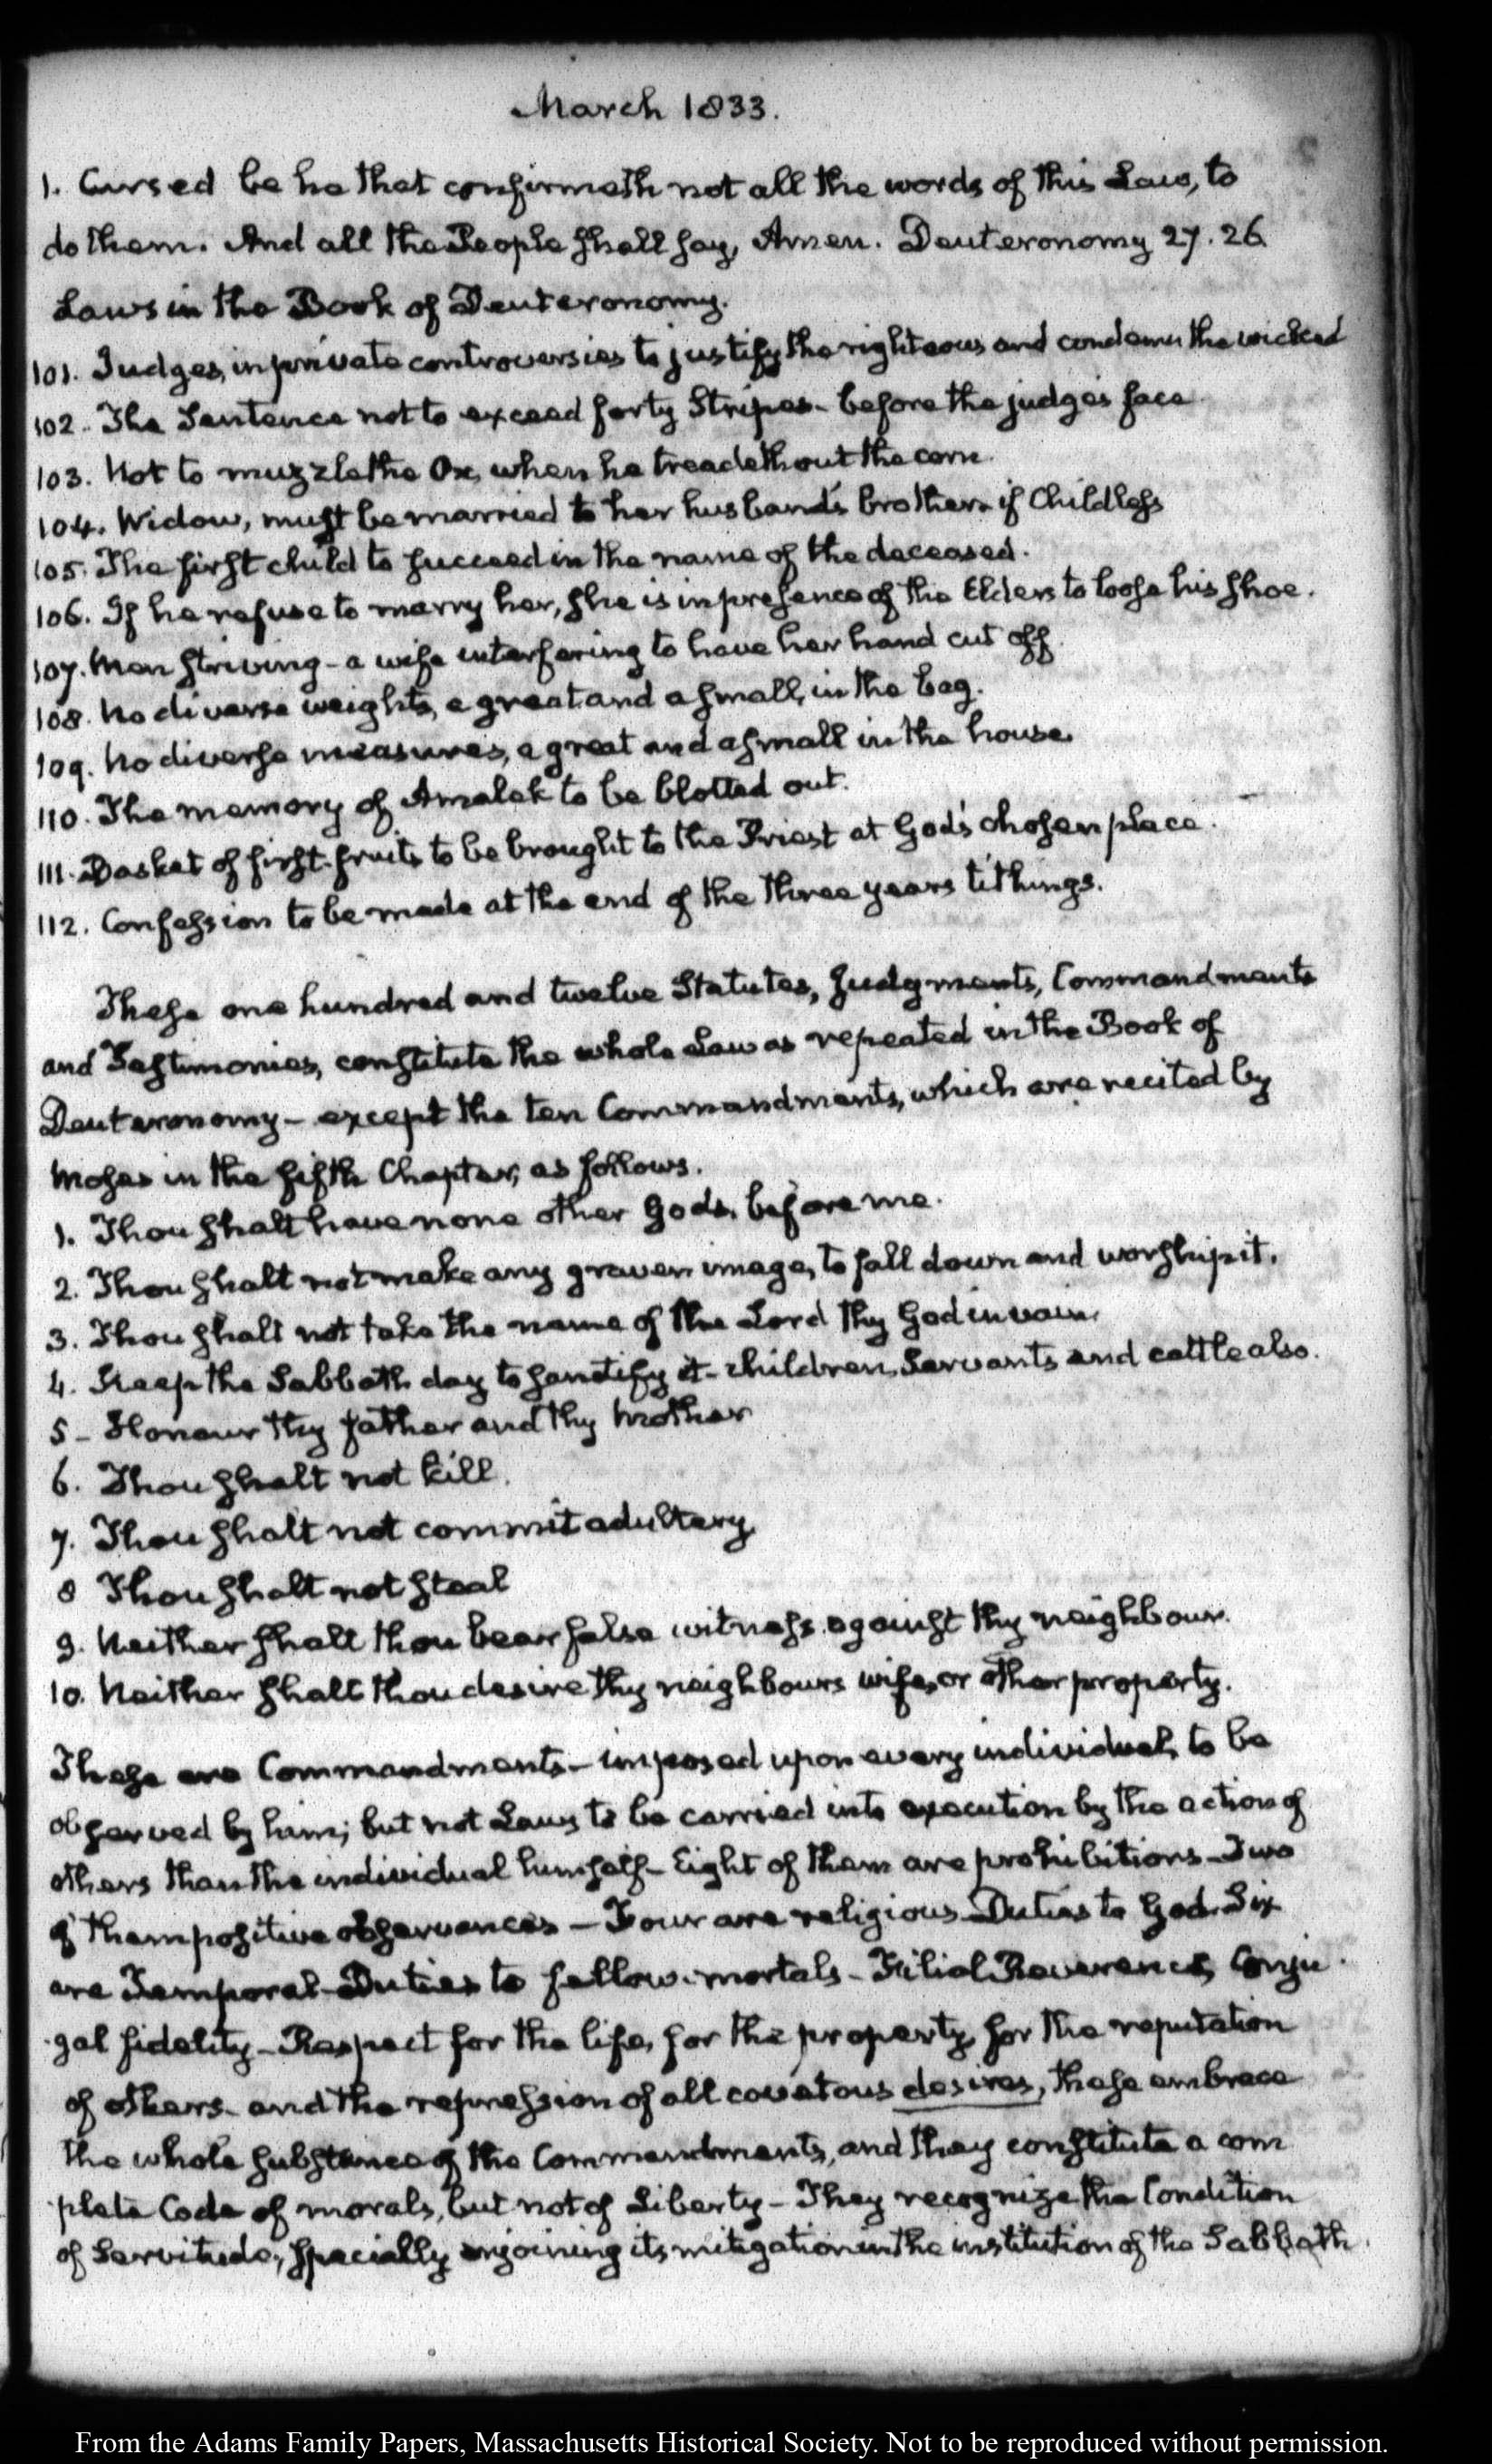 March 1833.
1. Cursed be he that confirmeth not all the words of this Law, to
do them. And all the People shall say, Amen. Deuteronomy 27. 26.
Laws in the Book of Deuteronomy.
101. Judges, in private controversies to justify the righteous and condemn the wicked
102. The Sentence not to exceed forty Stripes - before the judge's face.
103. Not to muzzle the Ox, when he treadeth out the corn.
104. Widow, must be married to her husband's brother if Childless
105. The first child to succeed in the name of the deceased.
106. If he refuse to marry her, she is in presence of the Elders to loose his shoe.
107. Men striving - a wife interfering to have her hand cut off.
108. No diverse weights, a great and a small, in the bag.
109. No diverse measures, a great and a small in the house.
110. The memory of Amalek to be blotted out.
111. Basket of first-fruits to be brought to the Priest at God's chosen place.
112. Confession to be made at the end of the three years tithings.
These one hundred and twelve Statutes, Judgments, Commandments
and Testimonies, constitute the whole Law as repeated in the Book of
Deuteronomy - except the ten Commandments, which are recited by
Moses in the fifth Chapter, as follows.
1. Thou shalt have none other Gods, before me.
2. Thou shalt not make any graven image, to fall down and worship it.
3. Thou shalt not take the name of the Lord thy God in vain.
4. Keep the Sabbath day to sanctify it - children, Servants and cattle also.
5 - Honour thy father and thy Mother
6. Thou shalt not kill.
7. Thou shalt not commit adultery.
8 Thou shalt not steal
9. Neither shalt thou bear false witness against thy neighbour.
10. Neither shalt thou desire thy neighbours wife, or other property.
These are Commandments - imposed upon every individual, to be
observed by him; but not Laws to be carried into execution by the action of
others than the individual himself - Eight of them are prohibitions - Two
of them positive observances - Four are religious Duties to God. Six
are Temporal - Duties to fellow-mortals - Filial Reverence, Conju-
gal fidelity - Respect for the life, for the property, for the reputation
of others - and the repression of all covetous desires, these embrace
the whole substance of the Commandments, and they constitute a com
plete Code of morals, but not of Liberty - They recognize the Condition
of Servitude, specially enjoining its mitigation in the institution of the Sabbath.
From the Adams Family Papers, Massachusetts Historical Society. Not to be reproduced without permission.